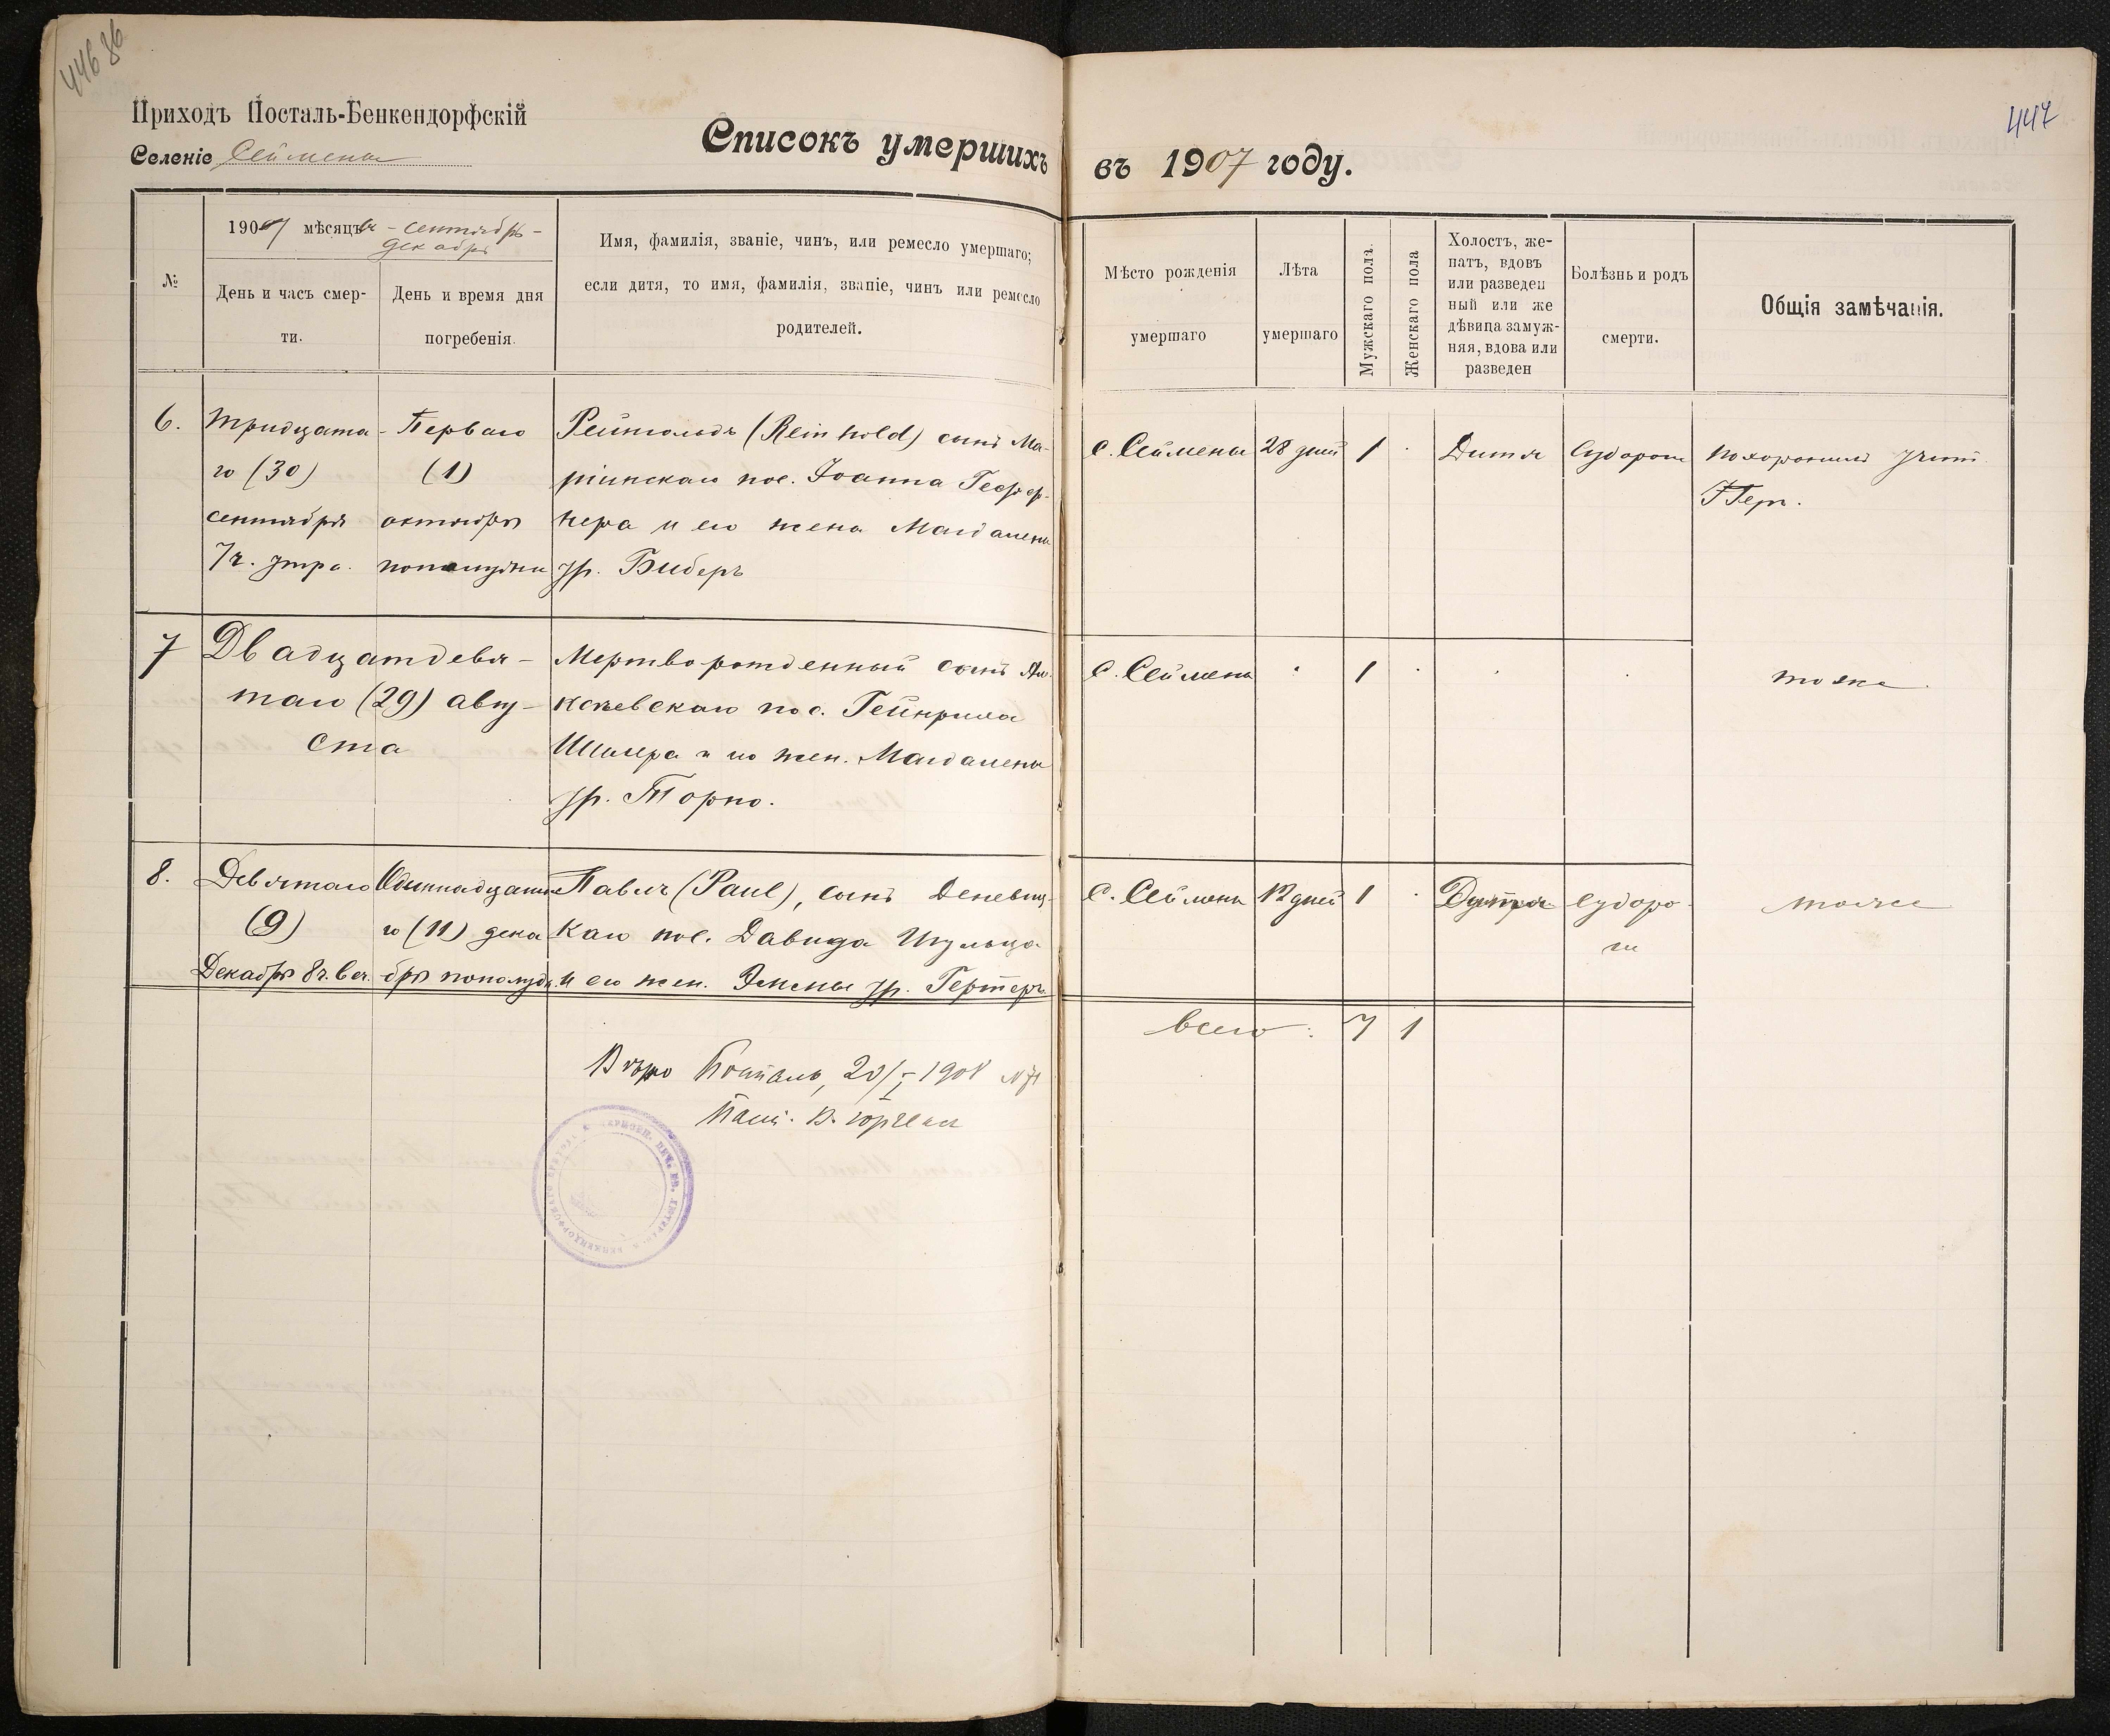 446 86
447
Приходъ Посталь-Бенкендорфскій
Селеніе Сеймены
Списокъ умершихъ въ 1907 году.
№
1907 мѣсяцъ - сентябрь -
декабрь
День и часъ смер-
ти.
День и время дня
погребенія.
Имя, фамилія, званіе, чинъ, или ремесло умершаго;
если дитя, то имя, фамилія, званіе, чинъ или ремесло
родителей.
Мѣсто рожденія
умершаго
Лѣта
умершаго
Мужскаго пола.
Женскаго пола
Холостъ, же-
натъ, вдовъ
или разведен
ный или же
дѣвица замуж-
няя, вдова или
разведен
Болѣзнь и родъ
смерти.
Общія замѣчанія.
6.
Тридцата-
го (30)
сентября
7 ч. утра.
Перваго
(1)
октября
пополудни
Рейнольдъ (Reinhold) сынъ Ма-
ріинскаго пос. Іоанна
и его жена Магдалены
ур. Биберъ
с. Сеймены
28 дней
1
Дитя
Судороги
похоронилъ учит.
7
Двадцатдевя-
таго (29) авгу-
ста
Мертворожденный сынъ
пос. Гейнриха
и его жен. Магдалены
ур. Торно.
с. Сеймены
1
тоже
8.
Девятаго
(9)
Декабря 8 ч. веч.
Одиннадцата
го (11) дека
бря пополуд.
Павелъ (Paul), сынъ Деневиц-
каго пос. Давида Шульца
и его жен. ур. Гертеръ
с. Сеймены
12 дней
1
Дитя
судоро-
ги
тоже
всего: 7 1
Вѣрно Посталь, 20/I 1908 № 71
Паст.